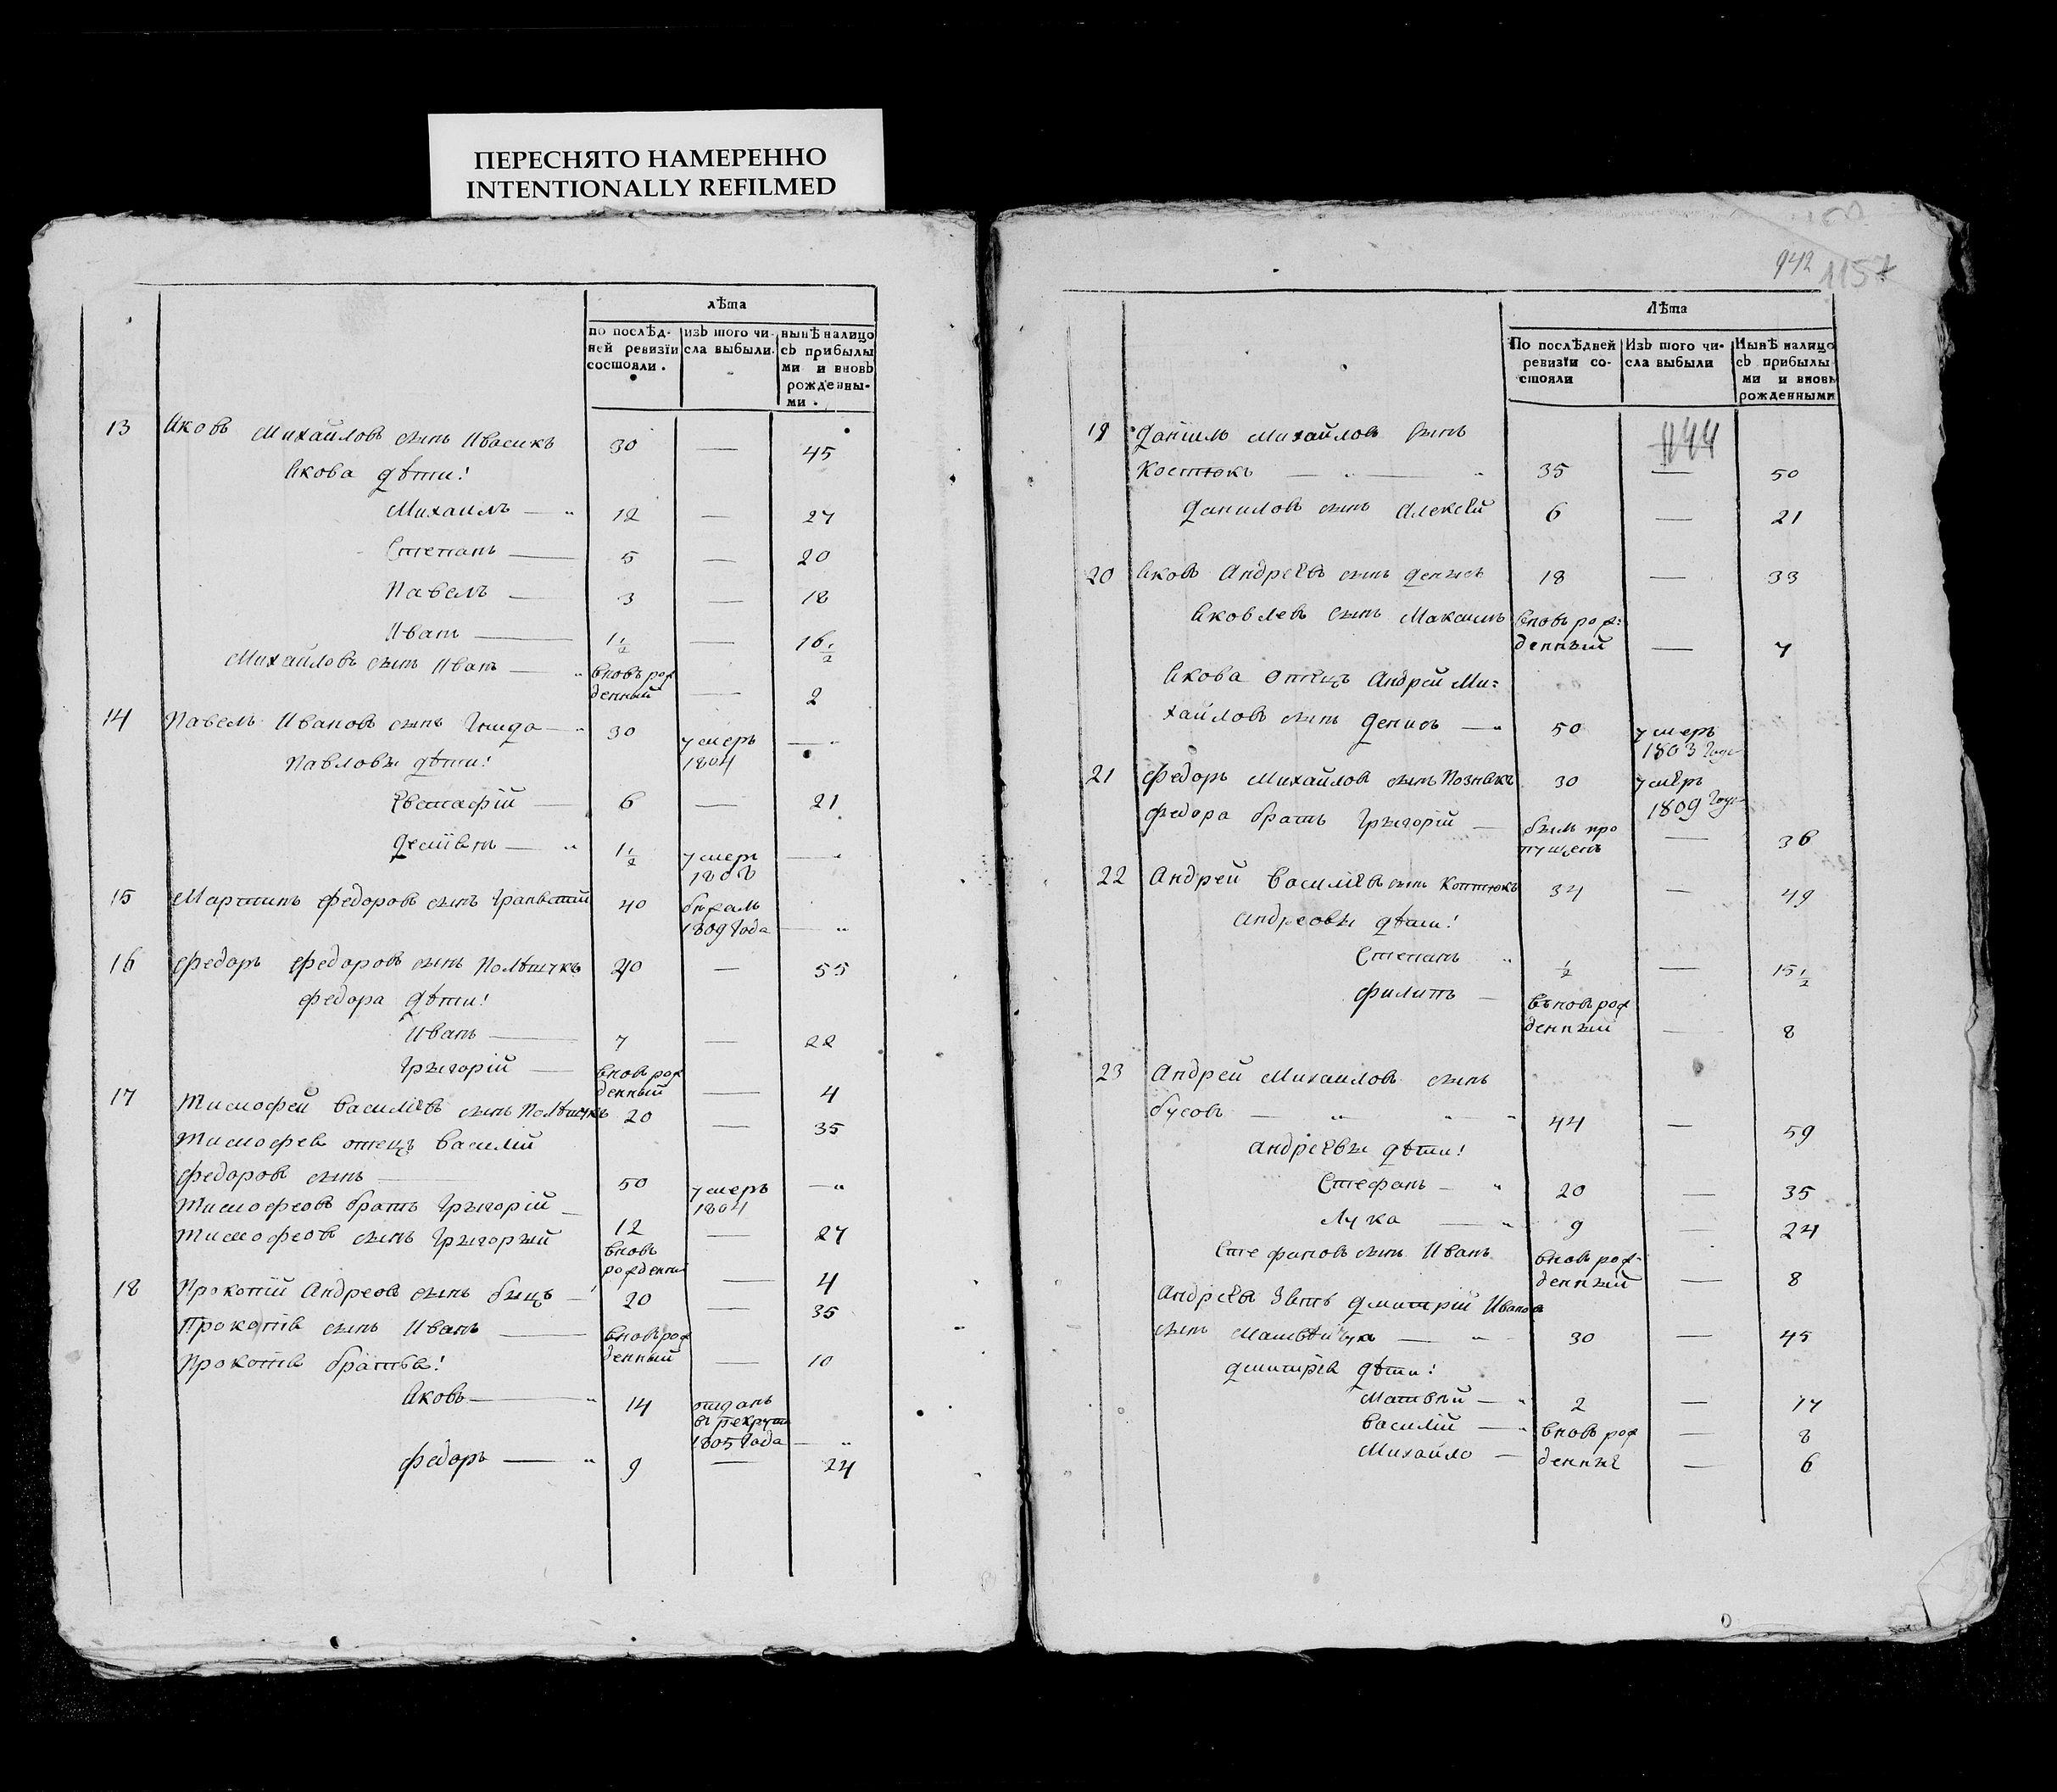 ПЕРЕСНЯТО НАМЕРЕННО
INTENTIONALLY REFILMED
лѣта
по послѣдней ревизїи состояли.
изъ того числа выбыли.
нынѣ налицо съ прибылыми и вновь рожденными.
13 Яковъ Михайловъ сынъ Ивасикъ 30 — 45
Якова дѣти!
Михаилъ — 12 — 27
Степанъ — 5 — 20
Павелъ — 3 — 18
Иванъ — 1 1/2 — 16 1/2
Михайловъ сынъ Иванъ — вновь рож
денный — 2
14 Павелъ Ивановъ сынъ 30 умеръ
1804 —
Павловы дѣти!
Евстафій — 6 — 21
1 1/2 умеръ
1808 —
15 Мартинъ Федоровъ сынъ 40 бѣжалъ
1809 Года —
16 Федоръ Федоровъ сынъ Полѣщукъ 40 — 55
Федора дѣти!
Иванъ — 7 — 22
Грыгорій — вновь рож
денный — 4
17 Тимофей Василіевъ сынъ Полѣщукъ 20 — 35
Тимофея отецъ Василій
Федоровъ сынъ — 50 умеръ
1804 —
Тимофеовъ братъ Грыгорій — 12 — 27
Тимофеовъ сынъ Грыгорый вновь
рожденный — 4
18 Прокопій Андреовъ сынъ — 20 — 35
Прокопія сынъ Иванъ — вновь рож
денный — 10
Прокопія братья!
Яковъ — 14 отданъ
въ рекруты
1805 Года —
Федоръ — 9 — 24
942 1157
Лѣта
По послѣдней ревизїи состояли
Изъ того числа выбыли
Нынѣ налицо съ прибылыми и вновь рожденными
1144
19 Данилъ Михайловъ сынъ
Костюкъ — 35 — 50
Даниловъ сынъ Алексѣй 6 — 21
20 Яковъ Андреевъ сынъ Денысъ 18 — 33
Яковлевъ сынъ Максимъ вновь рож=
денный — 7
Якова Отецъ Андрей Ми=
хайловъ сынъ Денисъ — 50 умеръ
1803 Года
21 Федоръ Михайловъ сынъ Познякъ 30 умеръ
1809 Года
Федора братъ Грыгорій — былъ про
пущенъ — 36
22 Андрей Василіевъ сынъ 34 — 49
Андреовы дѣти!
Степанъ 1/2 — 15 1/2
Филипъ — въновь рож
денный — 8
23 Андрей Михаиловъ сынъ
Бусовъ — 44 — 59
Андреевы дѣти!
Стефанъ — 20 — 35
Лука — 9 — 24
Стефановъ сынъ Иванъ вновь рож-
денный — 8
Андреея Зять Дмитрій Ивановъ
сынъ — 30 — 45
Дмитрія дѣти!
Матвѣй — 2 — 17
Василій — вновь рож — 8
Михайло — денные — 6